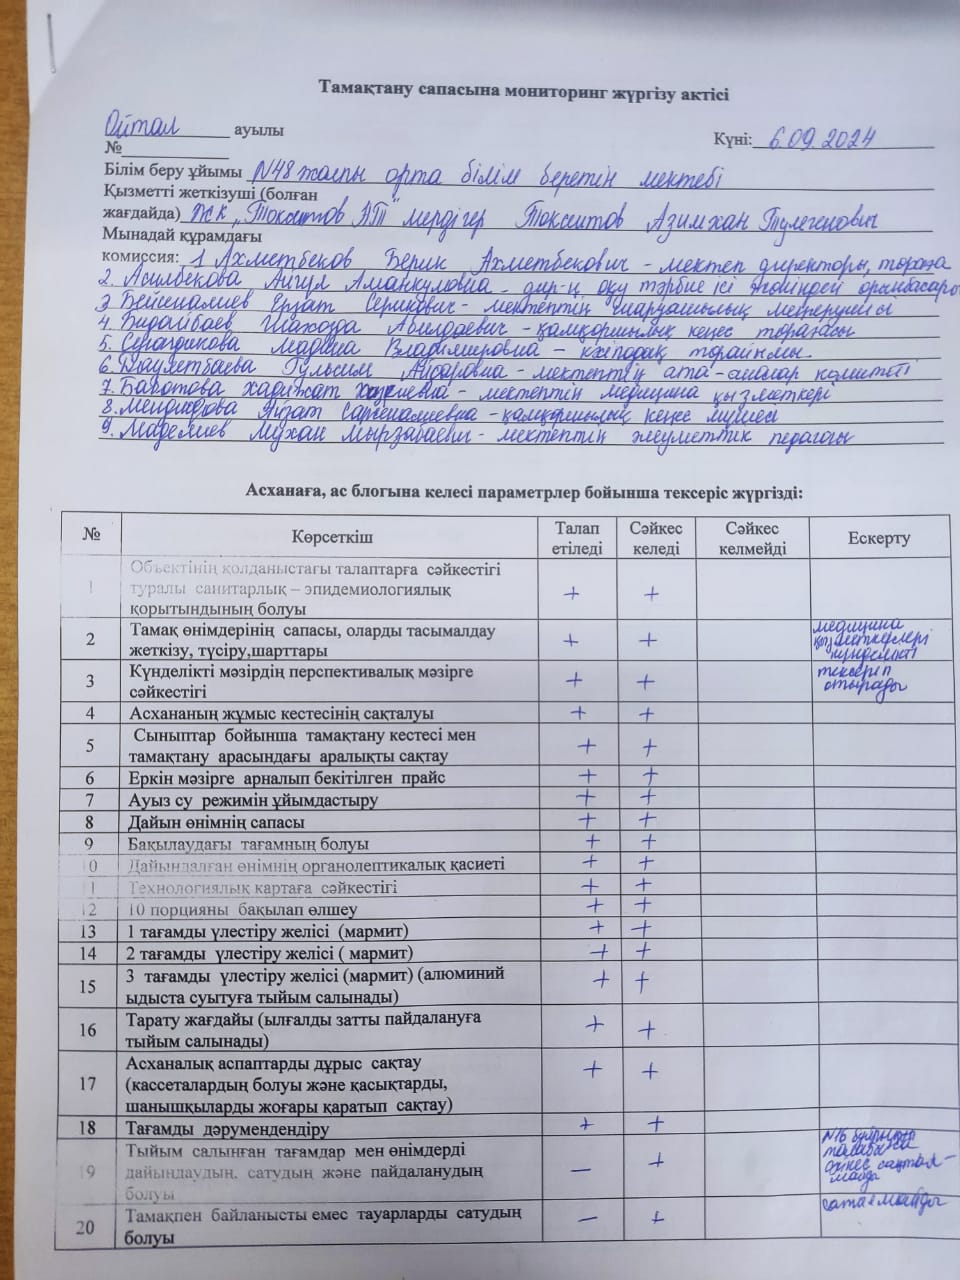 Тамақтану сапасына мониторинг жүргізу актісі
Ойтал ауылы
№
Күні: 6.09.2024
Білім беру ұйымы №48 жалпы орта білім беретін мектебі
Қызметті жеткізуші (болған
жағдайда) ЖК "Токситов мердігер Токситов Азимхан Тулегенович
Мынадай құрамдағы
комиссия: 1 Ахметбеков Берик Ахметбекович - мектеп директоры, төраға
2. Асылбекова Айгул Аманкуловна - дир-ң оқу тәрбие ісі жөніндегі орынбасары
3. Бейсеналиев Ерзат Серикович - мектептің шаруашылық меңгерушісі
4. Бидайбаев Шахозда Абилдаевич - қамқоршылық кеңес төрағасы
5. Мадина Владимировна - кәсіподақ төрайымы.
6. Даулетбаева Гульсим Айсаровна - мектептің ата-аналар комитеті
7. Бабатова Хадижат - мектептің медицина қызметкері
8. Айзат Сарсеналиевна - қамқоршылық кеңес мүшесі
9. Маделиев Мухан Мырзабаевич - мектептің әлеуметтік педагогы
Асханаға, ас блогына келесі параметрлер бойынша тексеріс жүргізді:
№ Көрсеткіш Талап етіледі Сәйкес келеді Сәйкес келмейді Ескерту
1 Объектінің қолданыстағы талаптарға сәйкестігі
туралы санитарлық – эпидемиологиялық
қорытындының болуы + +
2 Тамақ өнімдерінің сапасы, оларды тасымалдау
жеткізу, түсіру,шарттары + +
медицина
қызметкерлері
күнделікті
3 Күнделікті мәзірдің перспективалық мәзірге
сәйкестігі + +
тексеріп
отырады
4 Асхананың жұмыс кестесінің сақталуы + +
5 Сыныптар бойынша тамақтану кестесі мен
тамақтану арасындағы аралықты сақтау + +
6 Еркін мәзірге арналып бекітілген прайс + +
7 Ауыз су режимін ұйымдастыру + +
8 Дайын өнімнің сапасы + +
9 Бақылаудағы тағамның болуы + +
10 Дайындалған өнімнің органолептикалық қасиеті + +
11 Технологиялық картаға сәйкестігі + +
12 10 порцияны бақылап өлшеу + +
13 1 тағамды үлестіру желісі (мармит) + +
14 2 тағамды үлестіру желісі ( мармит) + +
15 3 тағамды үлестіру желісі (мармит) (алюминий
ыдыста суытуға тыйым салынады) + +
16 Тарату жағдайы (ылғалды затты пайдалануға
тыйым салынады) + +
17 Асханалық аспаптарды дұрыс сақтау
(кассеталардың болуы және қасықтарды,
шанышқыларды жоғары қаратып сақтау) + +
18 Тағамды дәрумендендіру + +
19 Тыйым салынған тағамдар мен өнімдерді
дайындаудың, сатудың және пайдаланудың
болуы — +
№16 бұйрықтың
талабы
сәйкес
20 Тамақпен байланысты емес тауарларды сатудың
болуы — +
сатылмайды